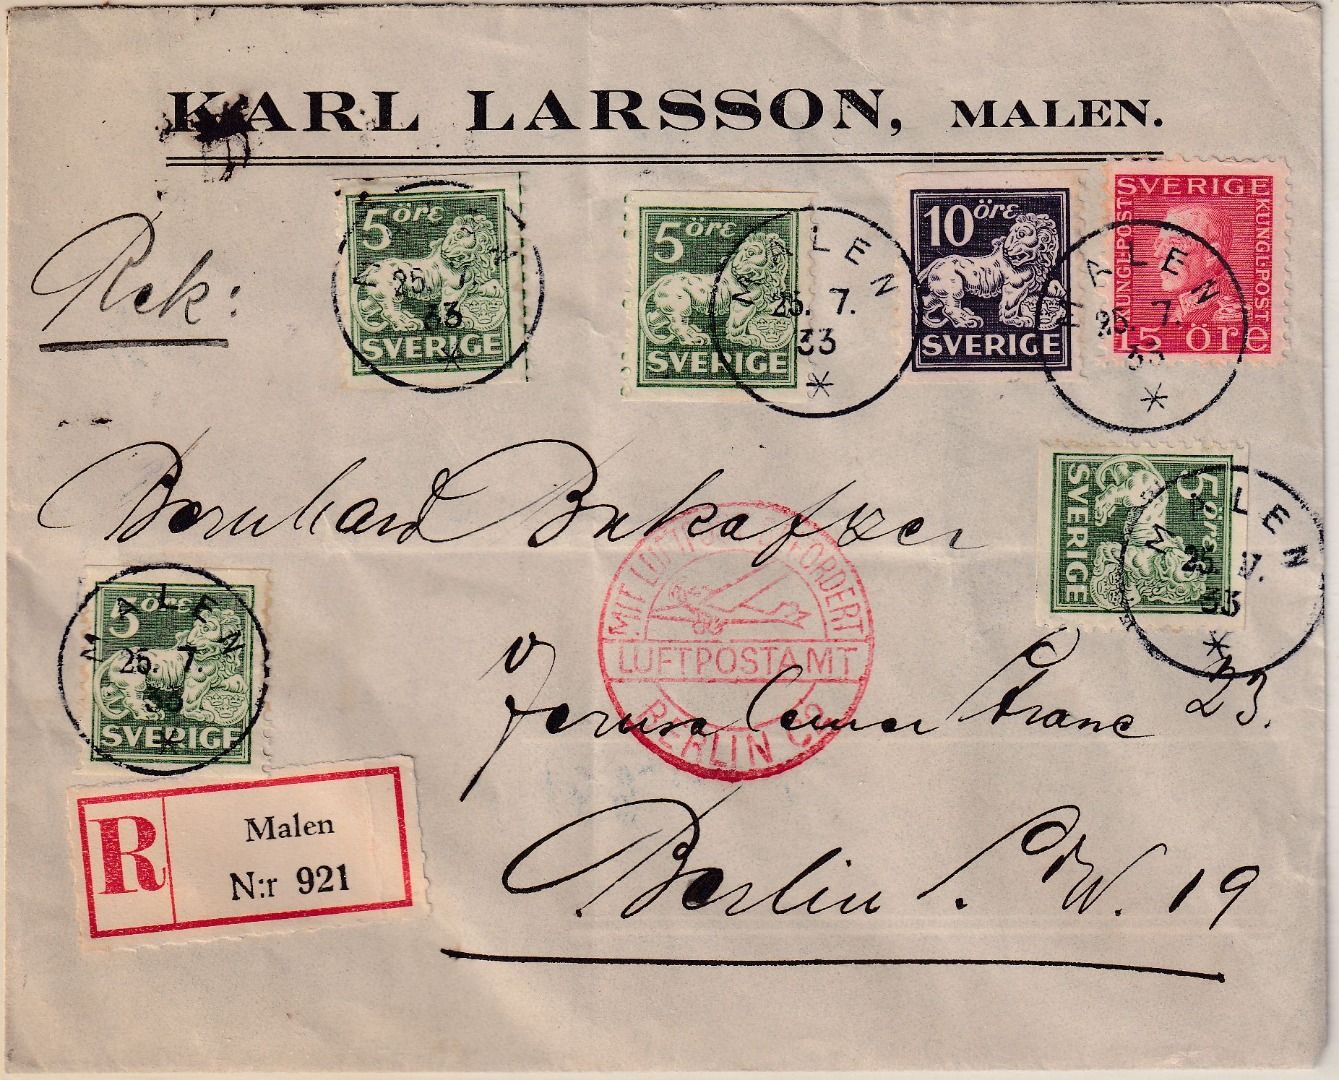 KARL LARSSON, MALEN.
Rek:
5 öre SVERIGE
MALEN 25. 7. 33
5 öre SVERIGE
MALEN 25. 7. 33
10 öre SVERIGE
SVERIGE KUNGL·POST KUNGL·POST 15 öre
MALEN 25. 7. 33
5 öre SVERIGE
MALEN 25. 7. 33
Bernhard
5 öre SVERIGE
MALEN 25. 7. 33
MIT LUFTPOST BEFÖRDERT
LUFTPOSTAMT
BERLIN C2
Jerusalemer Strane 23.
R Malen
N:r 921
Berlin S.W. 19